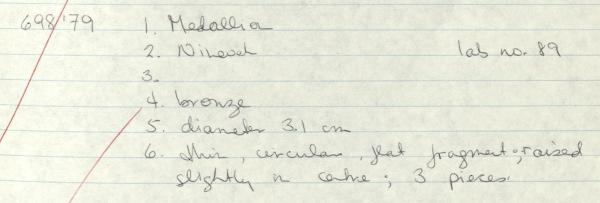 698'79 1. Medallion
2. Nineveh lab no. 89
3.
4. bronze
5. diameter 3.1 cm
6. thin, circular, flat fragment; raised
slightly in centre; 3 pieces.